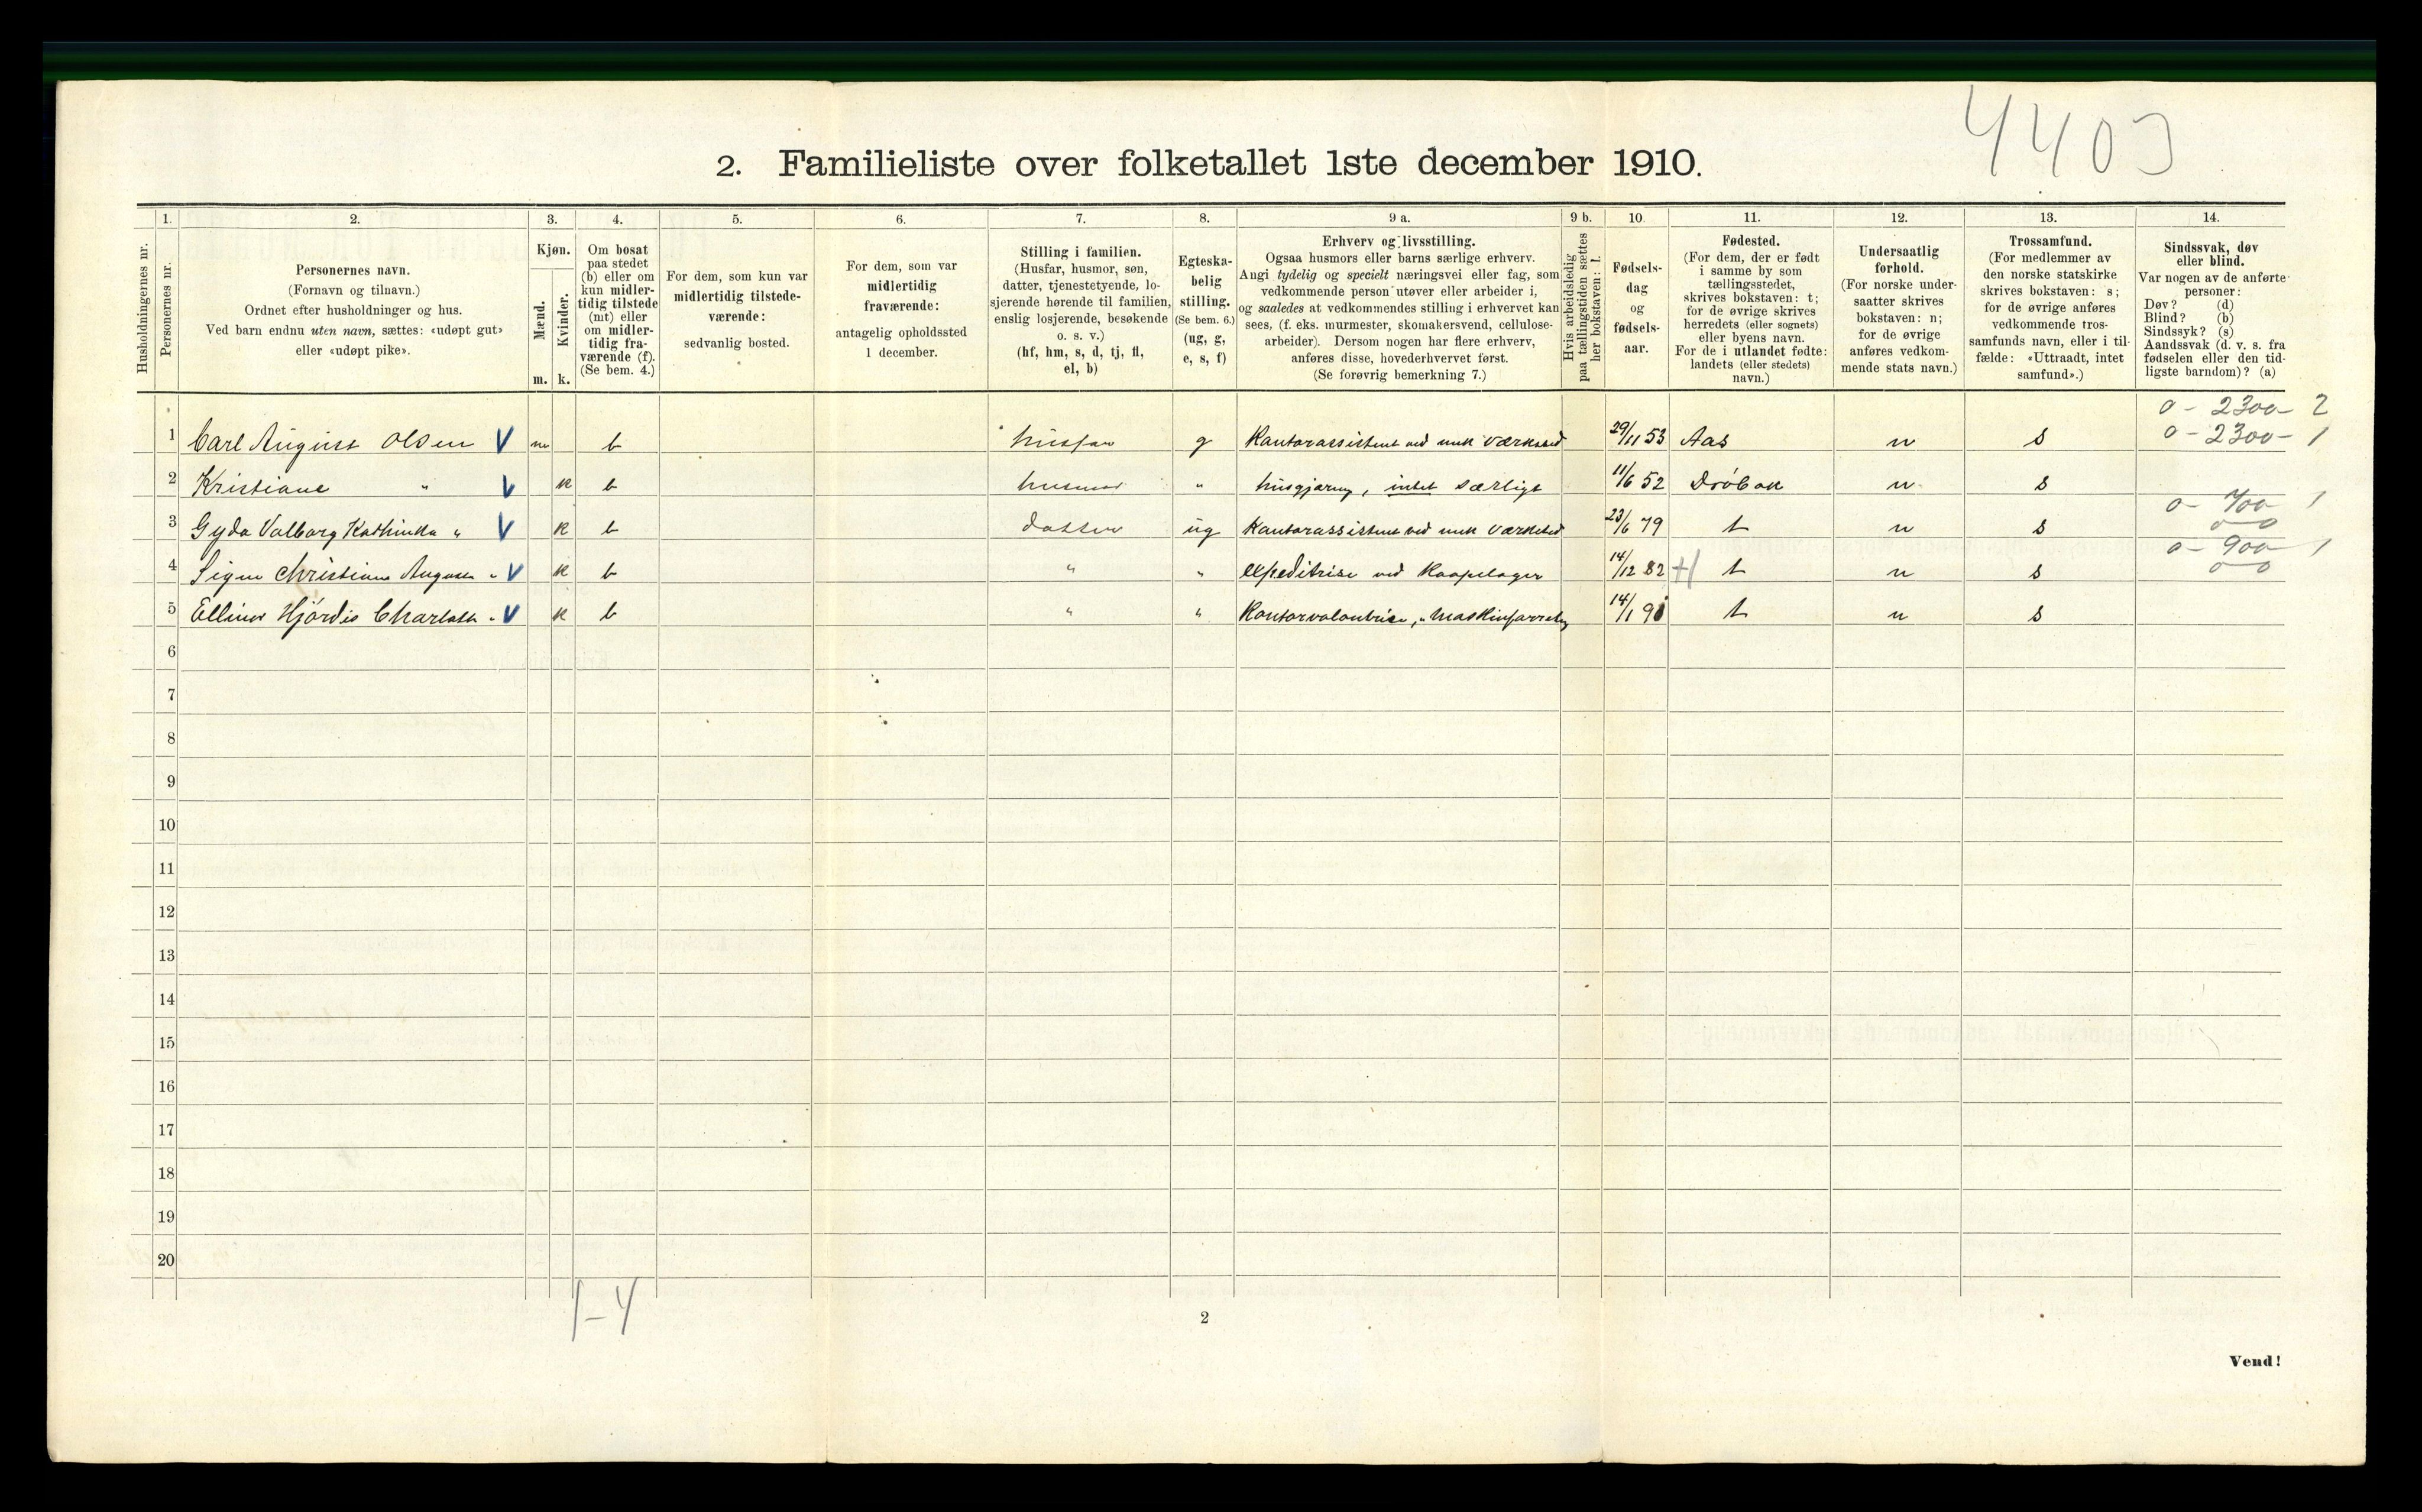 4403
2. Familieliste over folketallet 1ste december 1910.
Husholdningernes nr.
1. Personernes nr.
2. Personernes navn.
(Fornavn og tilnavn.)
Ordnet efter husholdninger og hus.
Ved barn endnu uten navn, sættes: «udøpt gut»
eller «udøpt pike».
3. Kjøn.
Mænd. m.
Kvinder. k.
4. Om bosat
paa stedet
(b) eller om
kun midler-
tidig tilstede
(mt) eller
om midler-
tidig fra-
værende (f).
(Se bem. 4.)
5. For dem, som kun var
midlertidig tilstede-
værende:
sedvanlig bosted.
6. For dem, som var
midlertidig
fraværende:
antagelig opholdssted
1 december.
7. Stilling i familien.
(Husfar, husmor, søn,
datter, tjenestetyende, lo-
sjerende hørende til familien,
enslig losjerende, besøkende
o. s. v.)
(hf, hm, s, d, tj, fl,
el, b)
8. Egteska-
belig
stilling.
(Se bem. 6.)
(ug, g,
e, s, f)
9 a. Erhverv og livsstilling.
Ogsaa husmors eller barns særlige erhverv.
Angi tydelig og specielt næringsvei eller fag, som
vedkommende person utøver eller arbeider i,
og saaledes at vedkommendes stilling i erhvervet kan
sees, (f. eks. murmester, skomakersvend, cellulose-
arbeider). Dersom nogen har flere erhverv,
anføres disse, hovederhvervet først.
(Se forøvrig bemerkning 7.)
9 b. Hvis arbeidsledig
paa tællingstiden sættes
her bokstaven: l.
10. Fødsels-
dag
og
fødsels-
aar.
11. Fødested.
(For dem, der er født
i samme by som
tællingsstedet,
skrives bokstaven: t;
for de øvrige skrives
herredets (eller sognets)
eller byens navn.
For de i utlandet fødte:
landets (eller stedets)
navn.)
12. Undersaatlig
forhold.
(For norske under-
saatter skrives
bokstaven: n;
for de øvrige
anføres vedkom-
mende stats navn.)
13. Trossamfund.
(For medlemmer av
den norske statskirke
skrives bokstaven: s;
for de øvrige anføres
vedkommende tros-
samfunds navn, eller i til-
fælde: «Uttraadt, intet
samfund».)
14. Sindssvak, døv
eller blind.
Var nogen av de anførte
personer:
Døv? (d)
Blind? (b)
Sindssyk? (s)
Aandssvak (d. v. s. fra
fødselen eller den tid-
ligste barndom)? (a)
0 - 2300 - 2
1 Carl August Olsen V m b husfar g Kontorassistent ved mek værksted 29/11 53 Aas n s 0 - 2300 - 1
2 Kristiane " V k b husmor " husgjærning, intet særligt 11/6 52 Dröbak n s
0 - 700 1
3 Gyda Valborg Kathinka " V k b datter ug Kontorassistent ved mek værksted 23/6 79 t n s 0 0
0 - 900 1
4 Signe Christiane Augusta " V k b " " expeditrise ved Kaapelager 14/12 82 t n s 0 0
5 Ellinor Hjördis Charlotte " V k b " " Kontorvolontrise, " Maskinforretn 14/1 91 t n s
6
7
8
9
10
11
12
13
14
15
16
17
18
19
20
1-4
2
Vend!